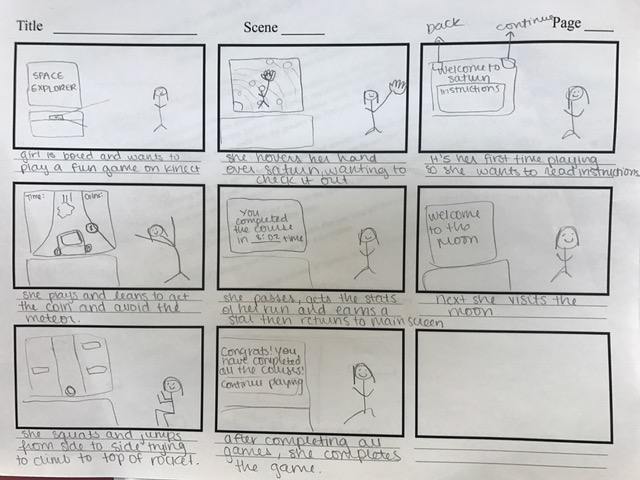 Title Scene Page
SPACE
EXPLORER
girl is bored and wants to
play a fun game on kinect
she hovers her hand
over saturn wanting to
check it out
back continue
Welcome to
saturn
instructions
It's her first time playing
so she wants to read instructions
Time: Coins:
she plays and leans to get
the coins and avoid the
meteor.
You
completed
the course
in 8:02 time
she passes, gets the stats
of her run and earns a
star then returns to main screen
Welcome
to the
moon
Next she visits the
moon
she squats and jumps
from side to side trying
to climb to top of rocket.
Congrats! You
have completed
all the courses!
continue playing
after completing all
games, she completes
the game.